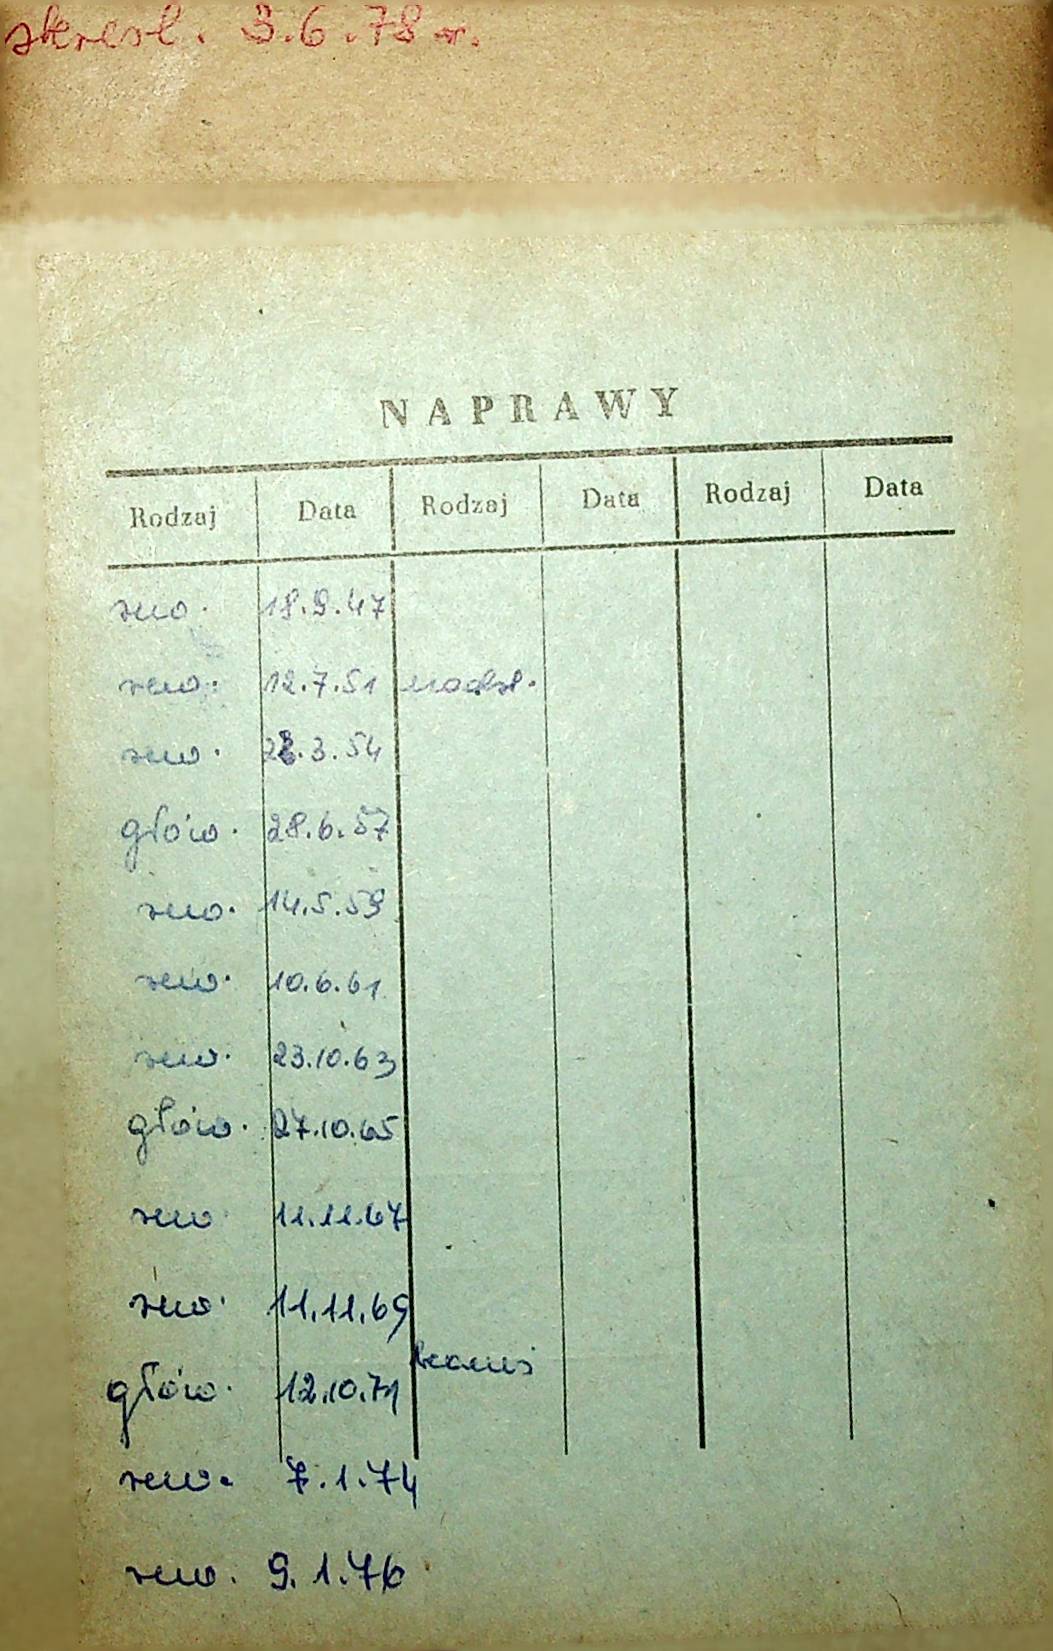 skreśl. 3.6.78 r.
NAPRAWY
Rodzaj Data Rodzaj Data Rodzaj Data
rew. 18.9.47
rew. 12.7.51 nadzł.
rew. 3.54
głów. 28.6.57
rew. 14.5.59
rew. 10.6.61
rew. 23.10.63
głów. 27.10.65
rew. 11.11.67
rew. 11.11.69
głów. 12.10.71
rew. 7.1.74
rew. 9.1.76